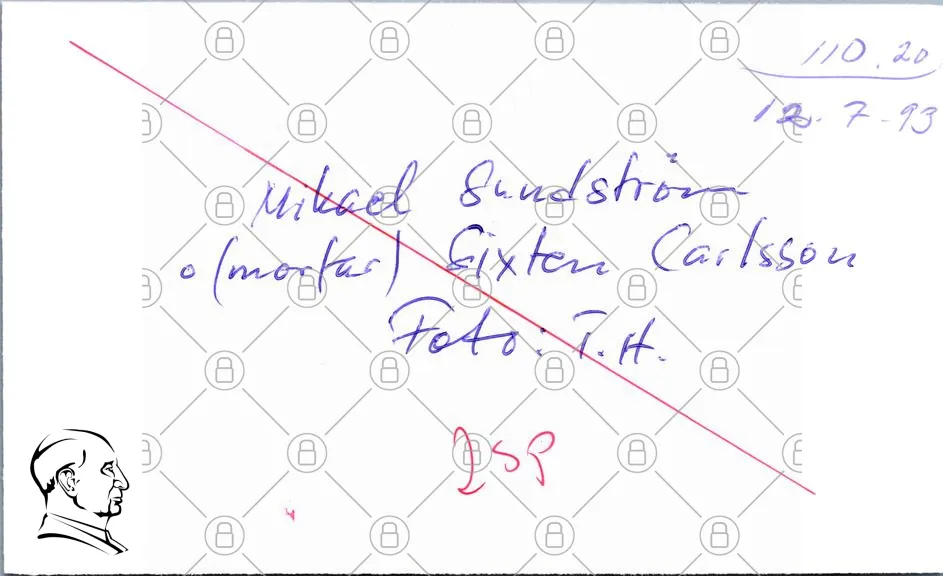 110.20
12.7-93
Mikael Sundström
o (morfar) Sixten Carlsson
Foto: T.H.